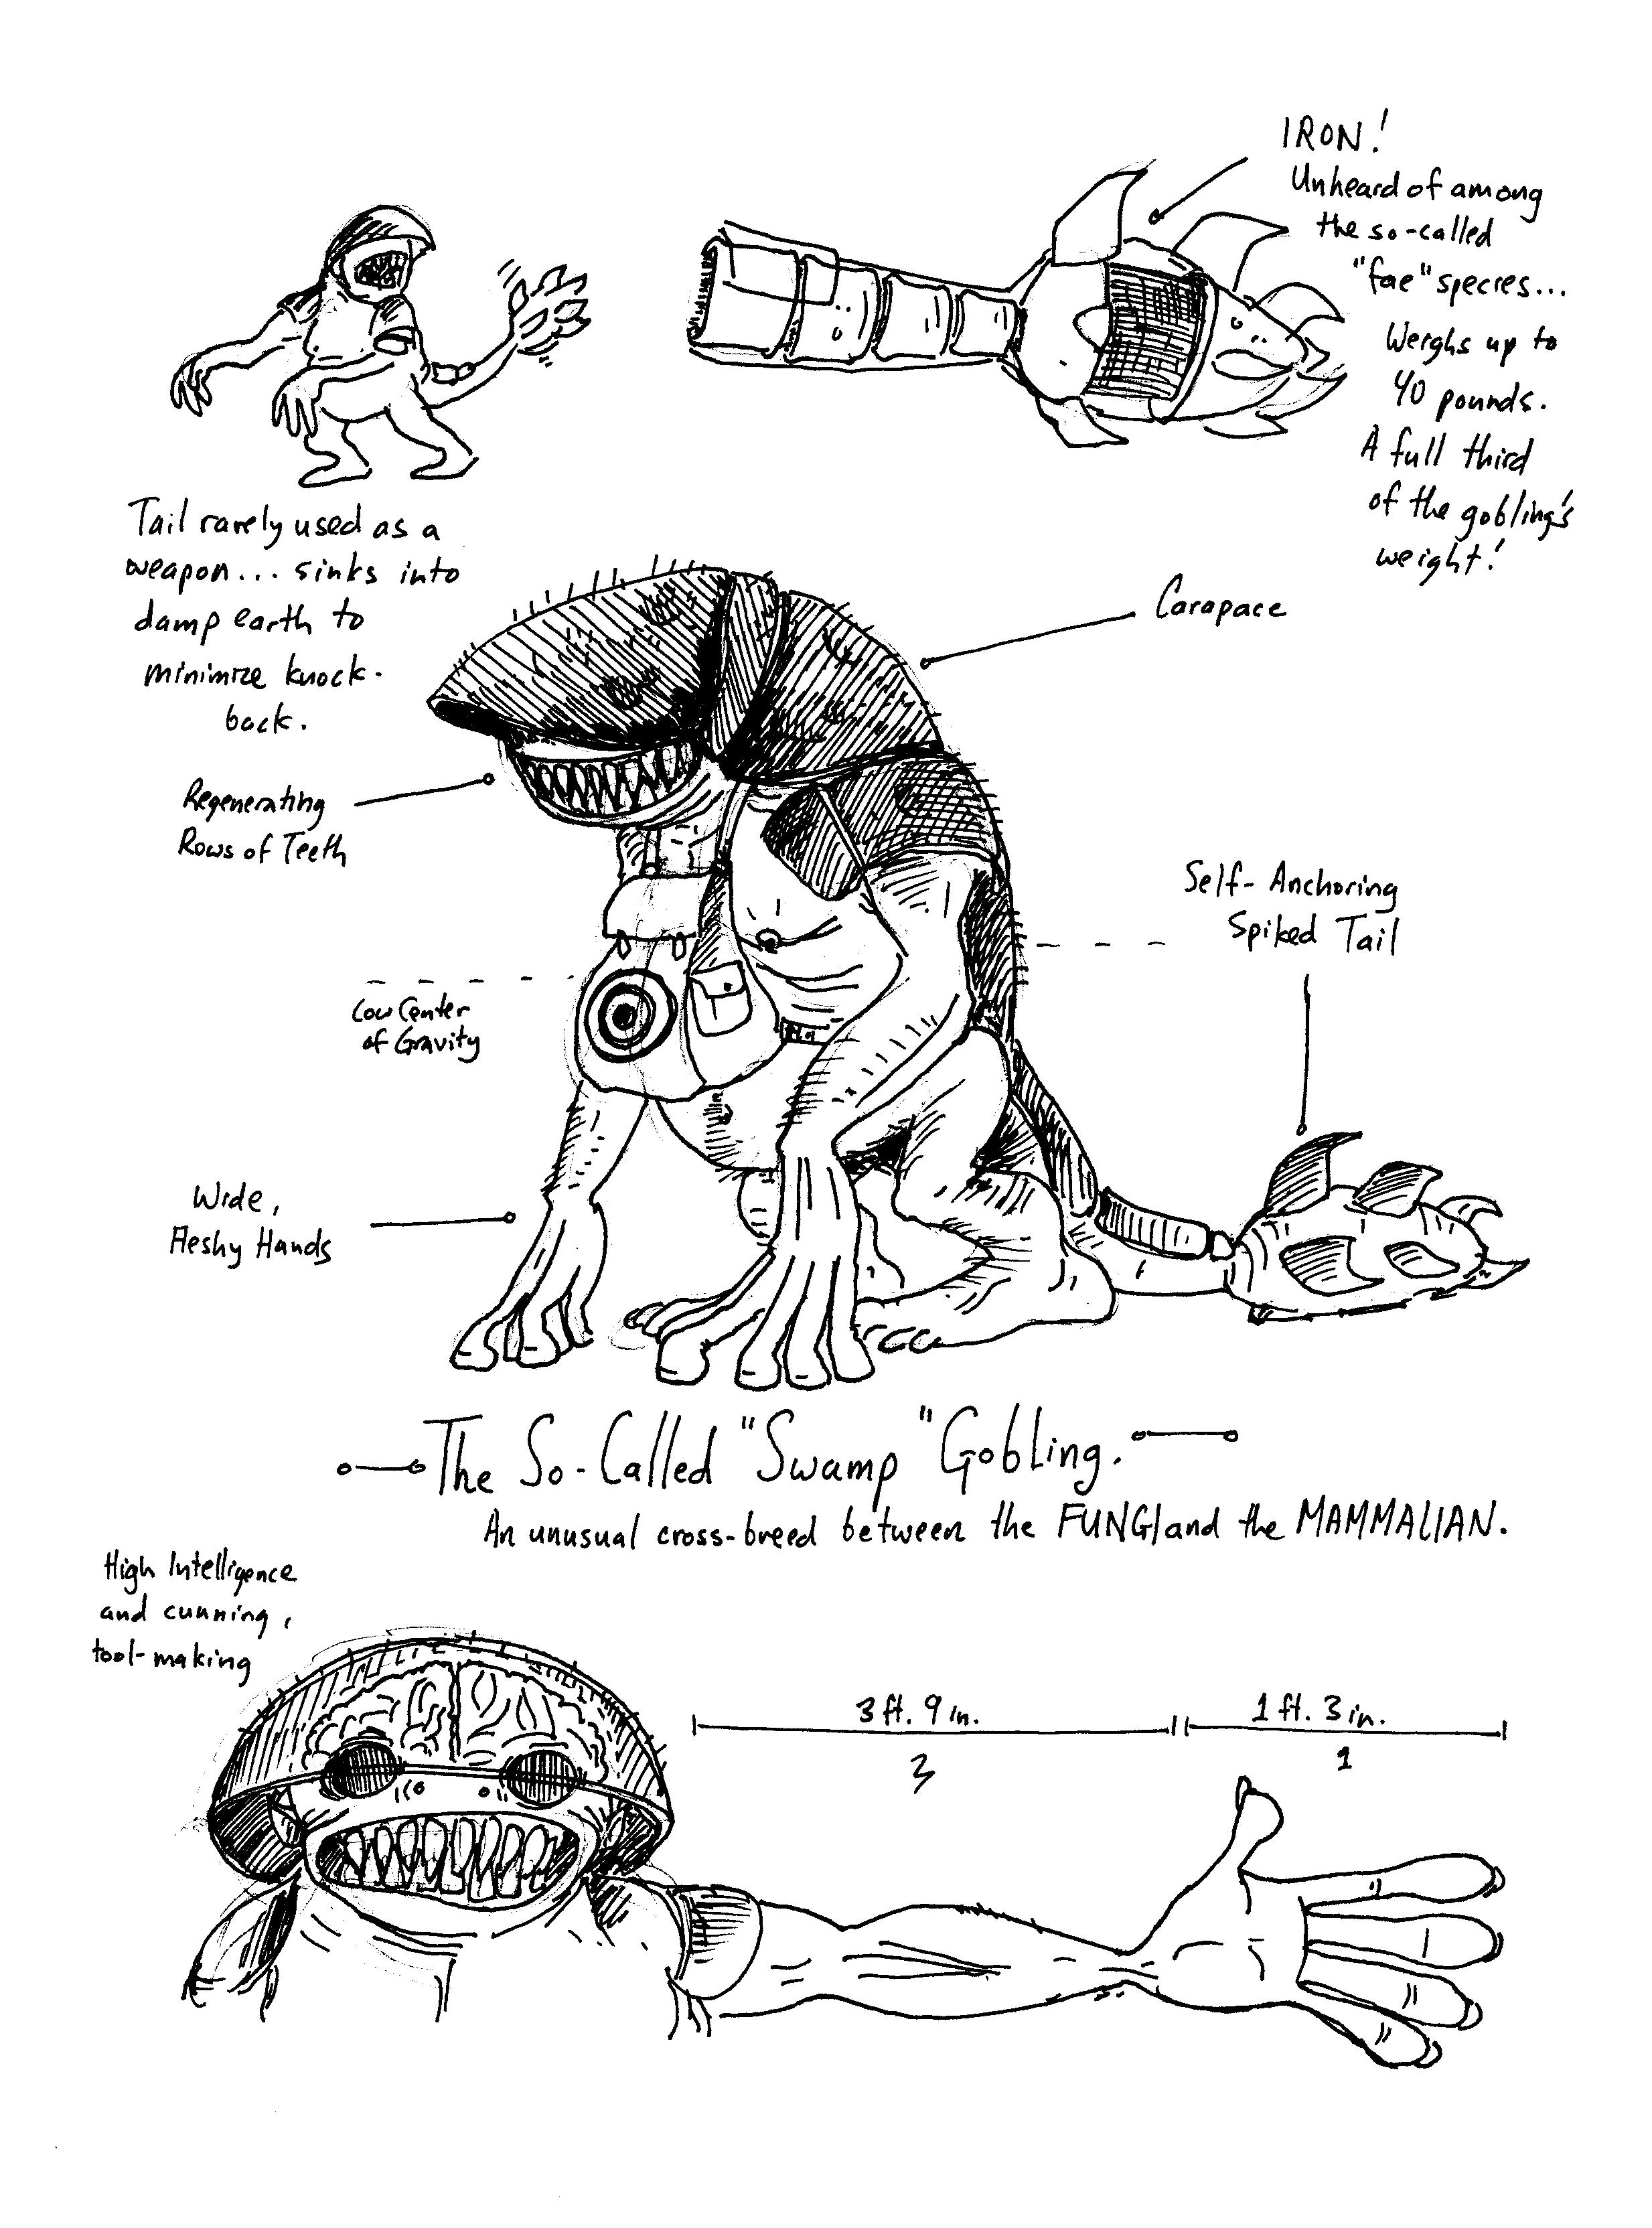 IRON!
Unheard of among
the so-called
"fae" species...
Weighs up to
40 pounds.
A full third
of the gobling's
weight!
Tail rarely used as a
weapon... sinks into
damp earth to
minimize knock-
back.
Carapace
Regenerating
Rows of Teeth
Self-Anchoring
Spiked Tail
Low Center
of Gravity
Wide,
Fleshy Hands
The So-Called "Swamp" Gobling.
An unusual cross-breed between the FUNGI and the MAMMALIAN.
High Intelligence
and cunning,
tool-making
3 ft. 9 in.
1 ft. 3 in.
3
1